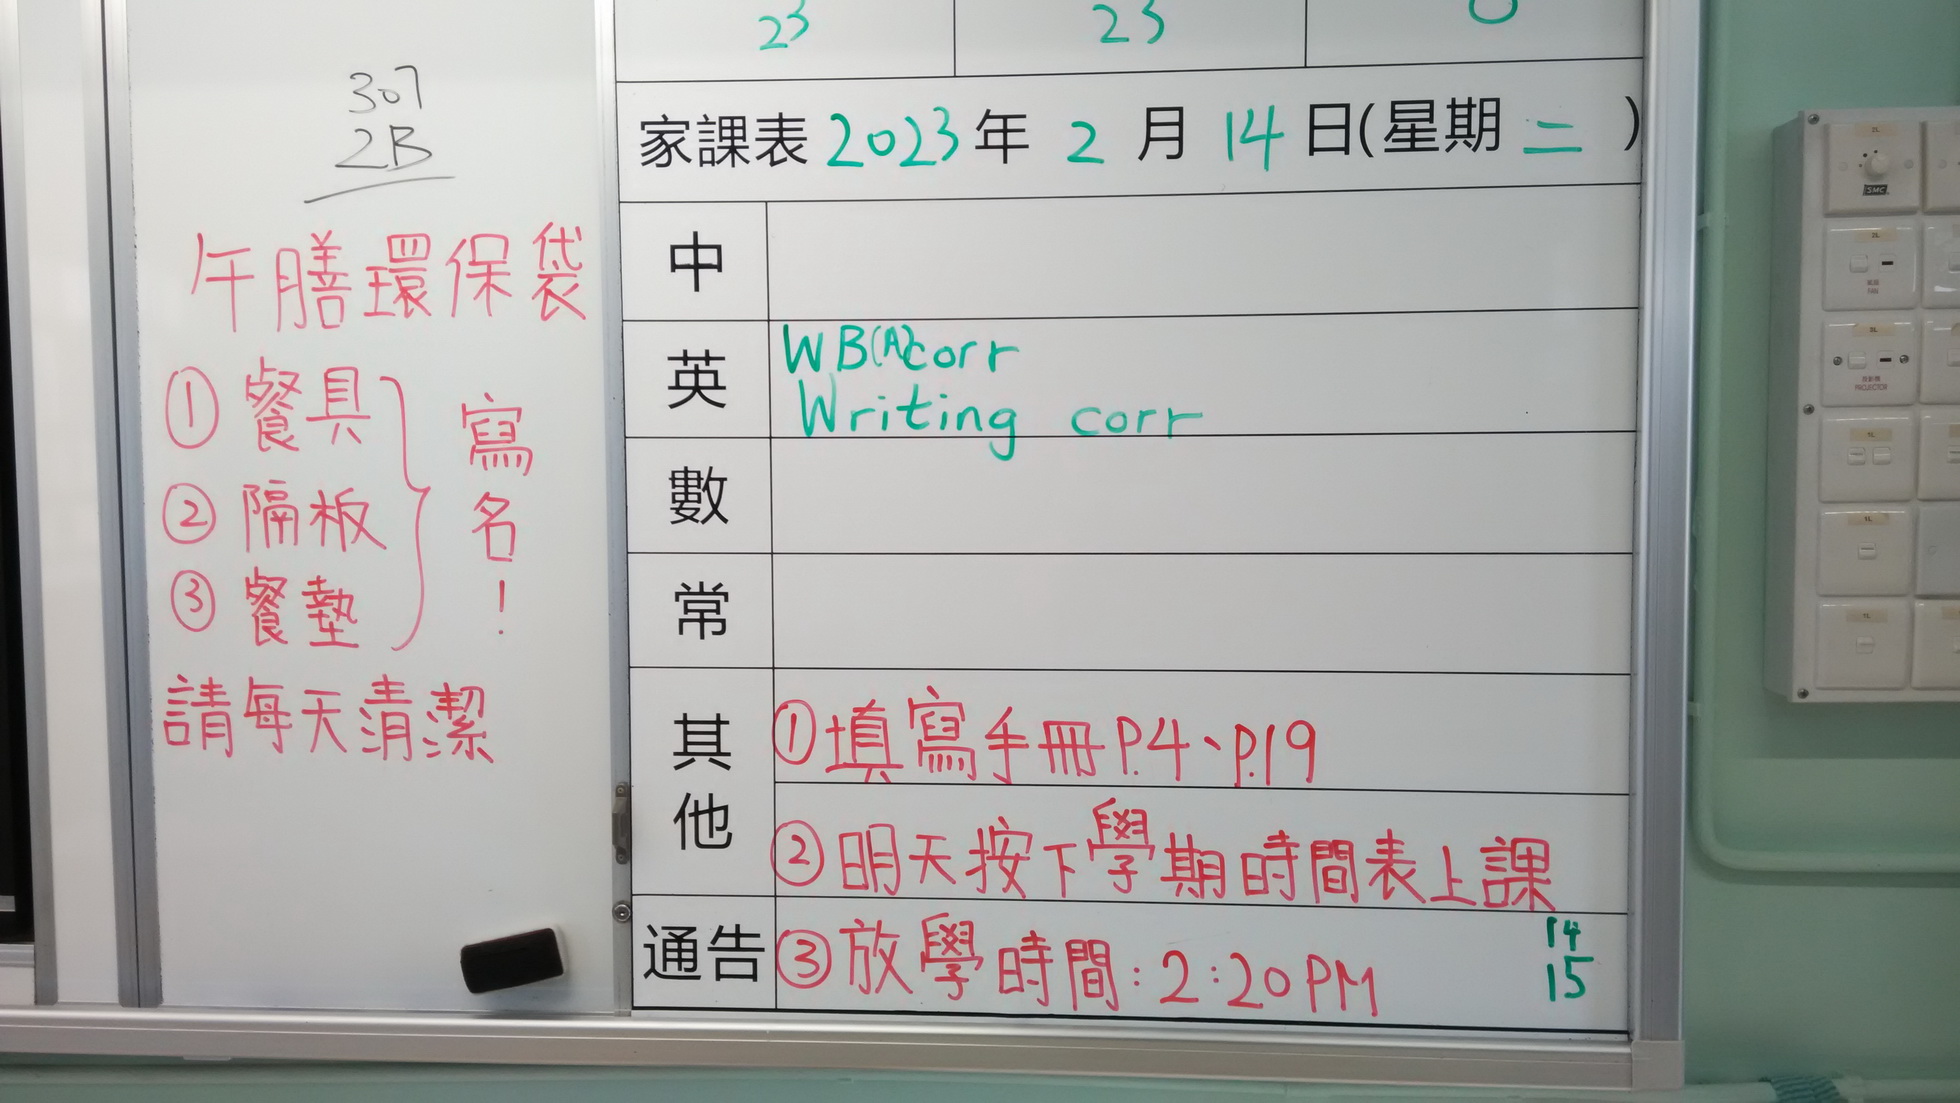 307
2B
午膳環保袋
① 餐具
② 隔板
③ 餐墊
寫名!
請每天清潔
23 23 0
家課表 2023 年 2 月 14 日(星期 二 )
中
英 WB(A)corr
Writing corr
數
常
其他 ①填寫手冊P.4、P.19
②明天按下學期時間表上課
通告 ③放學時間:2:20PM
14
15
SMC
PROJECTOR